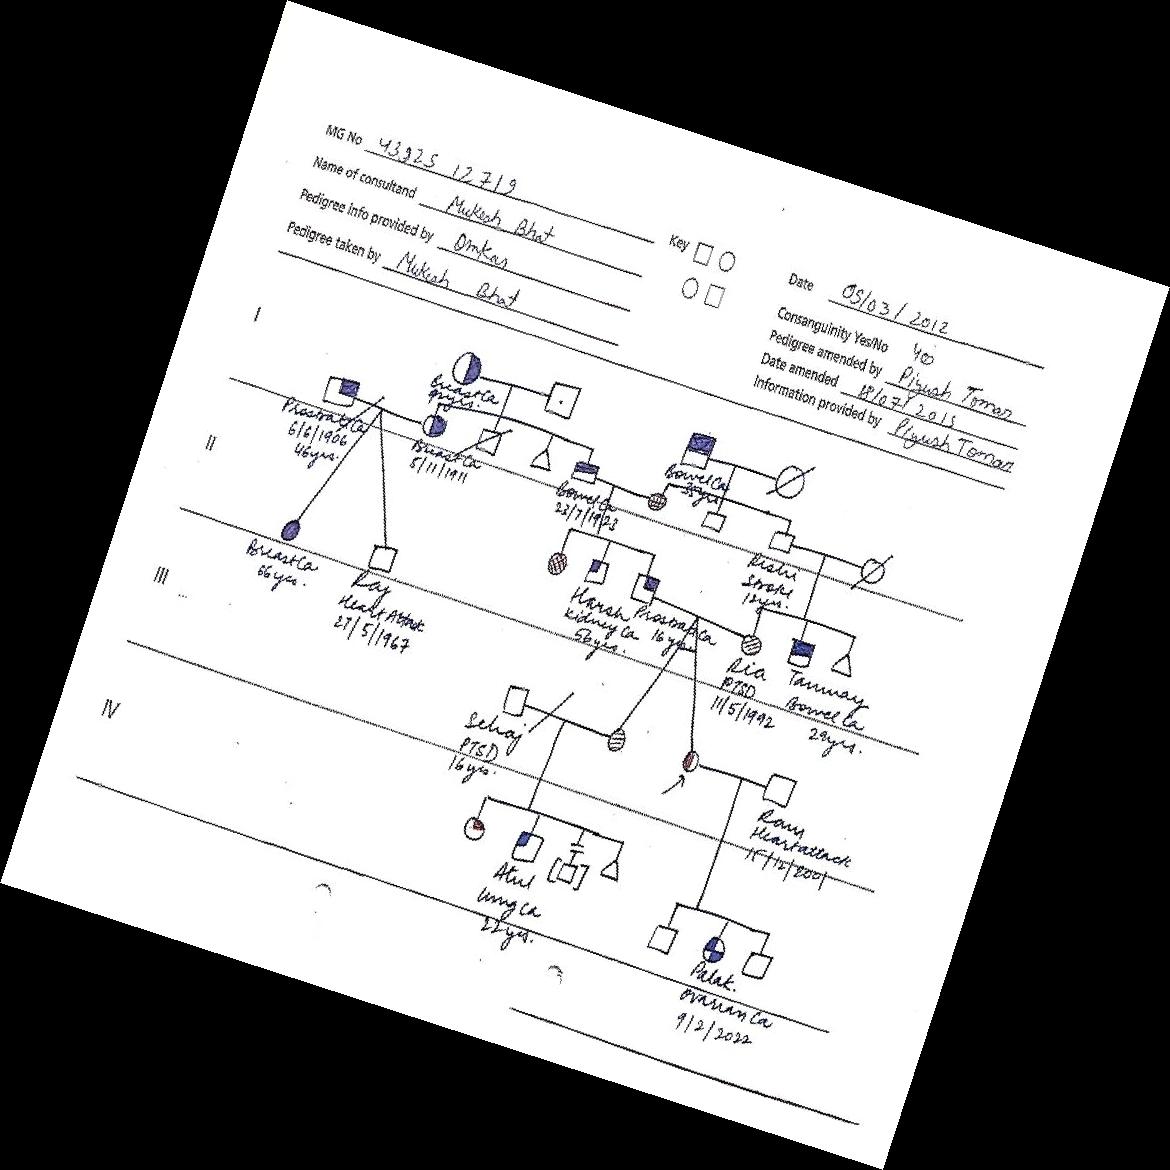 MG No 43925 12719
Name of consultand Mukesh Bhat
Pedigree info provided by Omkar
Pedigree taken by Mukesh Bhat
Key
Date 05/03/2012
Consanguinity Yes/No
Pedigree amended by Piyush Tomar
Date amended 18/07/2015
Information provided by Piyush Tomar
I
Breast Ca
Prostrate Ca
6/6/1906
46yrs.
II
Breast Ca
5/11/1911
Bowel Ca
35yrs.
Bowel Ca
23/7/1923
Rishi
Stroke
12yrs.
Breast Ca
66yrs.
Raj
Heart Attack
27/5/1967
III
Harsh
Kidney Ca
56yrs.
Prostrate Ca
16yrs.
Ria
PTSD
11/5/1992
Tanmay
Bowel Ca
29yrs.
IV
Sehaj
PTSD
16yrs.
Ram
Heart attack
15/12/2001
Atul
Lung Ca
22yrs.
Palak.
Ovarian Ca
9/2/2022